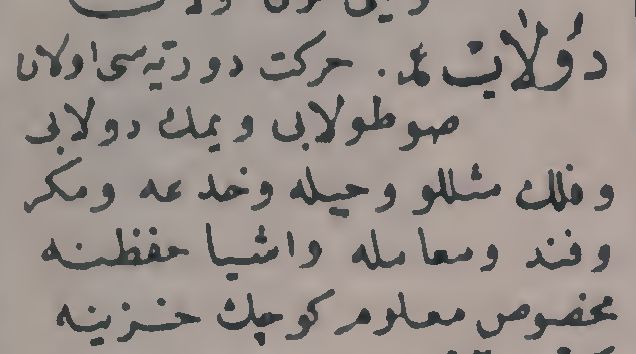 دولاب عد. حركت دوريه سى اولان
صو طولابى ويمك دولابى
وفلك مثللو وحيله وخدعه ومكر
وفند ومعامله واشيا حفظنه
مخصوص معلوم كوچك خزينه